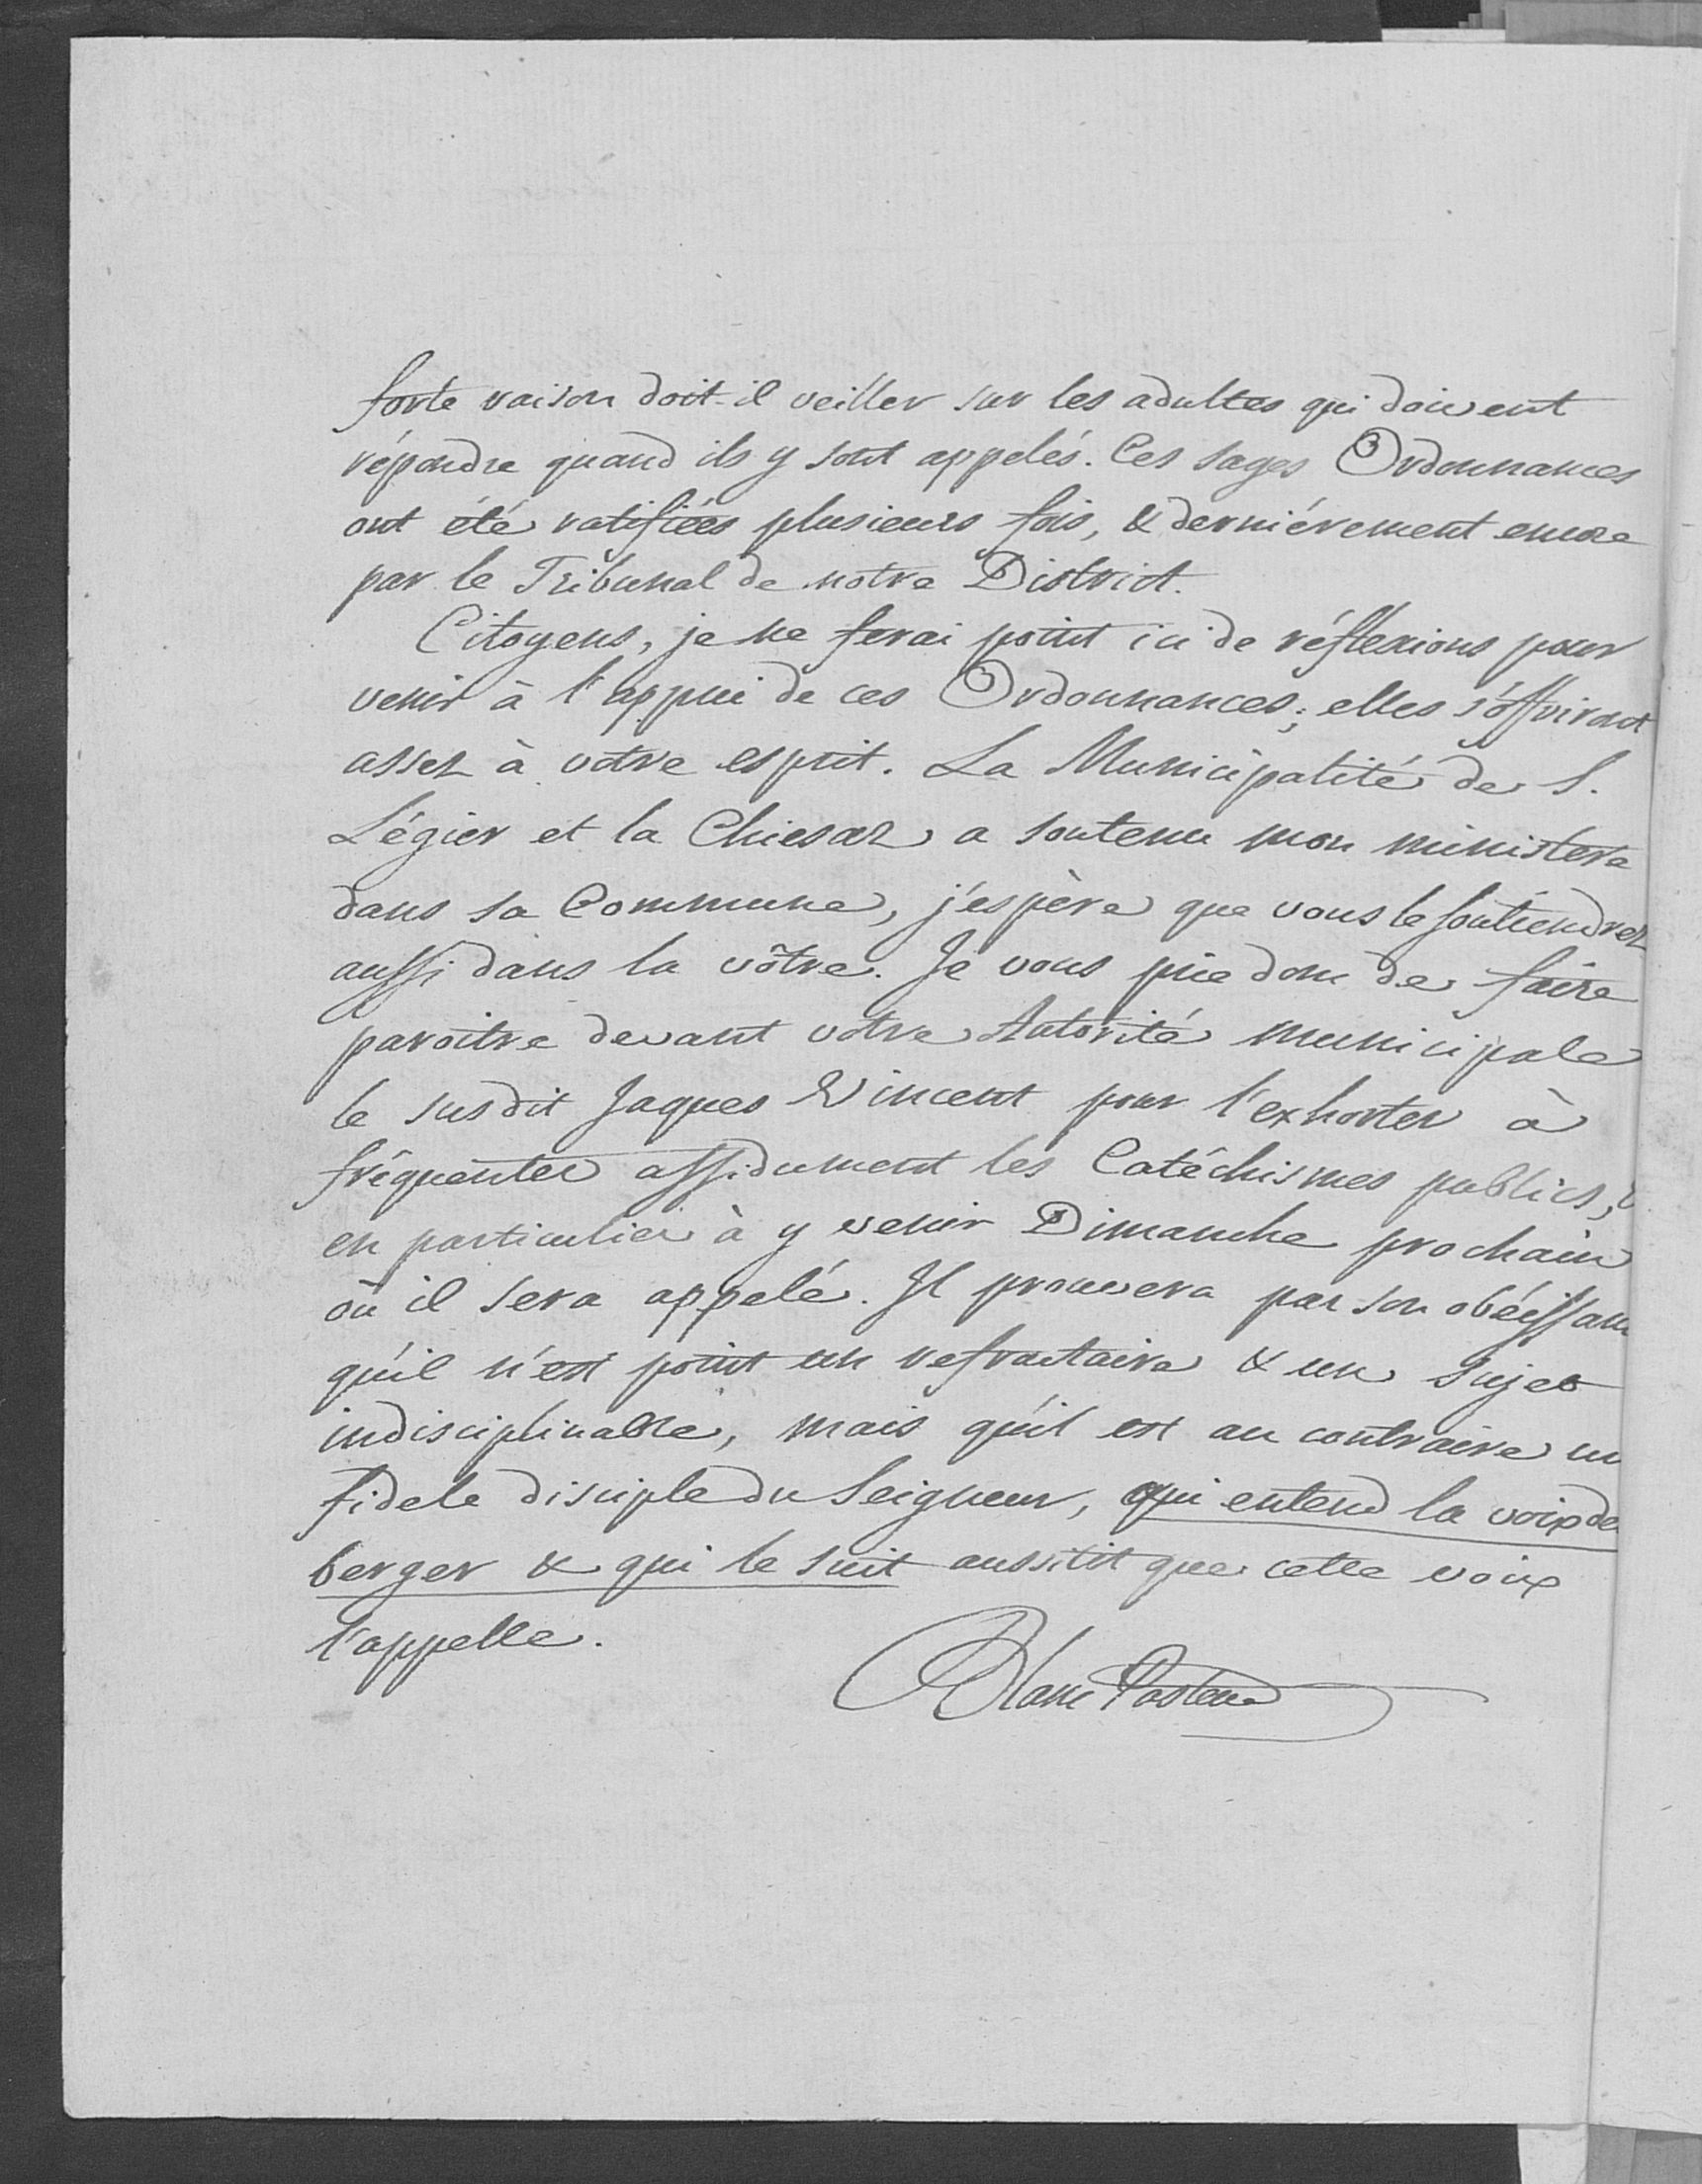 forte raison doit-il veiller sur les adultes qui doivent
répondre quand ils y sont appelés. Ces sages Ordonnances
ont été ratifiées plusieurs fois, & derniérement encore
par le Tribunal de notre District.
Citoyens, je ne ferai point ici de réflexions pour
venir à l'appui de ces Ordonnances; elles s'offriront
assez à votre esprit. La Municipalité de S.
Légier et la Chiesaz a soutenu mon ministere
dans sa Commune, j'espère que vous le soutiendrez
aussi dans la vôtre. Je vous prie donc de faire
paroitre devant votre Autorité municipale
le susdit Jaques Vincent pour l'exhorter à
fréquenter assidument les Catéchismes publics, &
en particulier à y venir Dimanche prochain
où il sera appelé. Il prouvera par son obéissanc
qu'il n'est point un refractaire & un sujet
indisciplinable, mais qu'il est au contraire un
fidele disciple du Seigneur, qui entend la voix de
berger & qui le suit aussitit que cette voix
l'appelle.
Blanc Pasteur